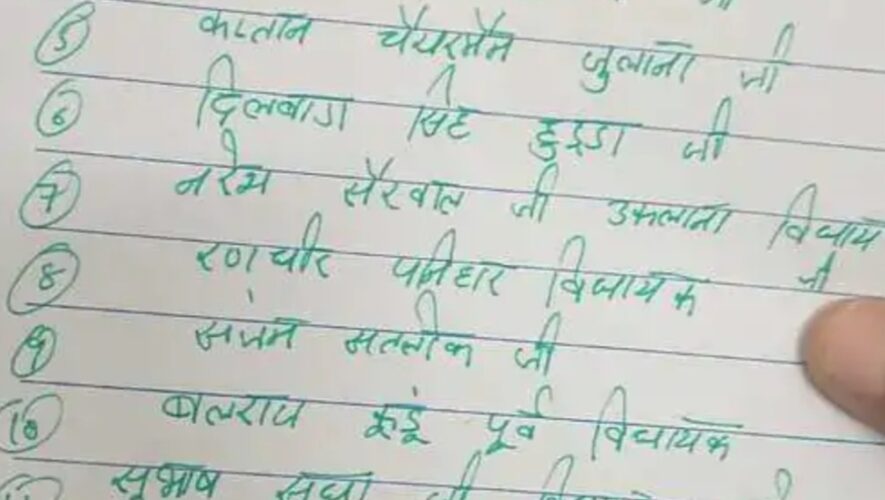 5 कप्तान चैयरमैन जुलाना जी
6 दिलबाग सिंह हुड्डा जी
7 नरेश सैरवाल जी उकलाना विधाय
8 रणधीर पनिहार विधायक जी
9 सतलोक जी
10 बलराज कुंडू पूर्व विधायक
सुभाष सुधा जी